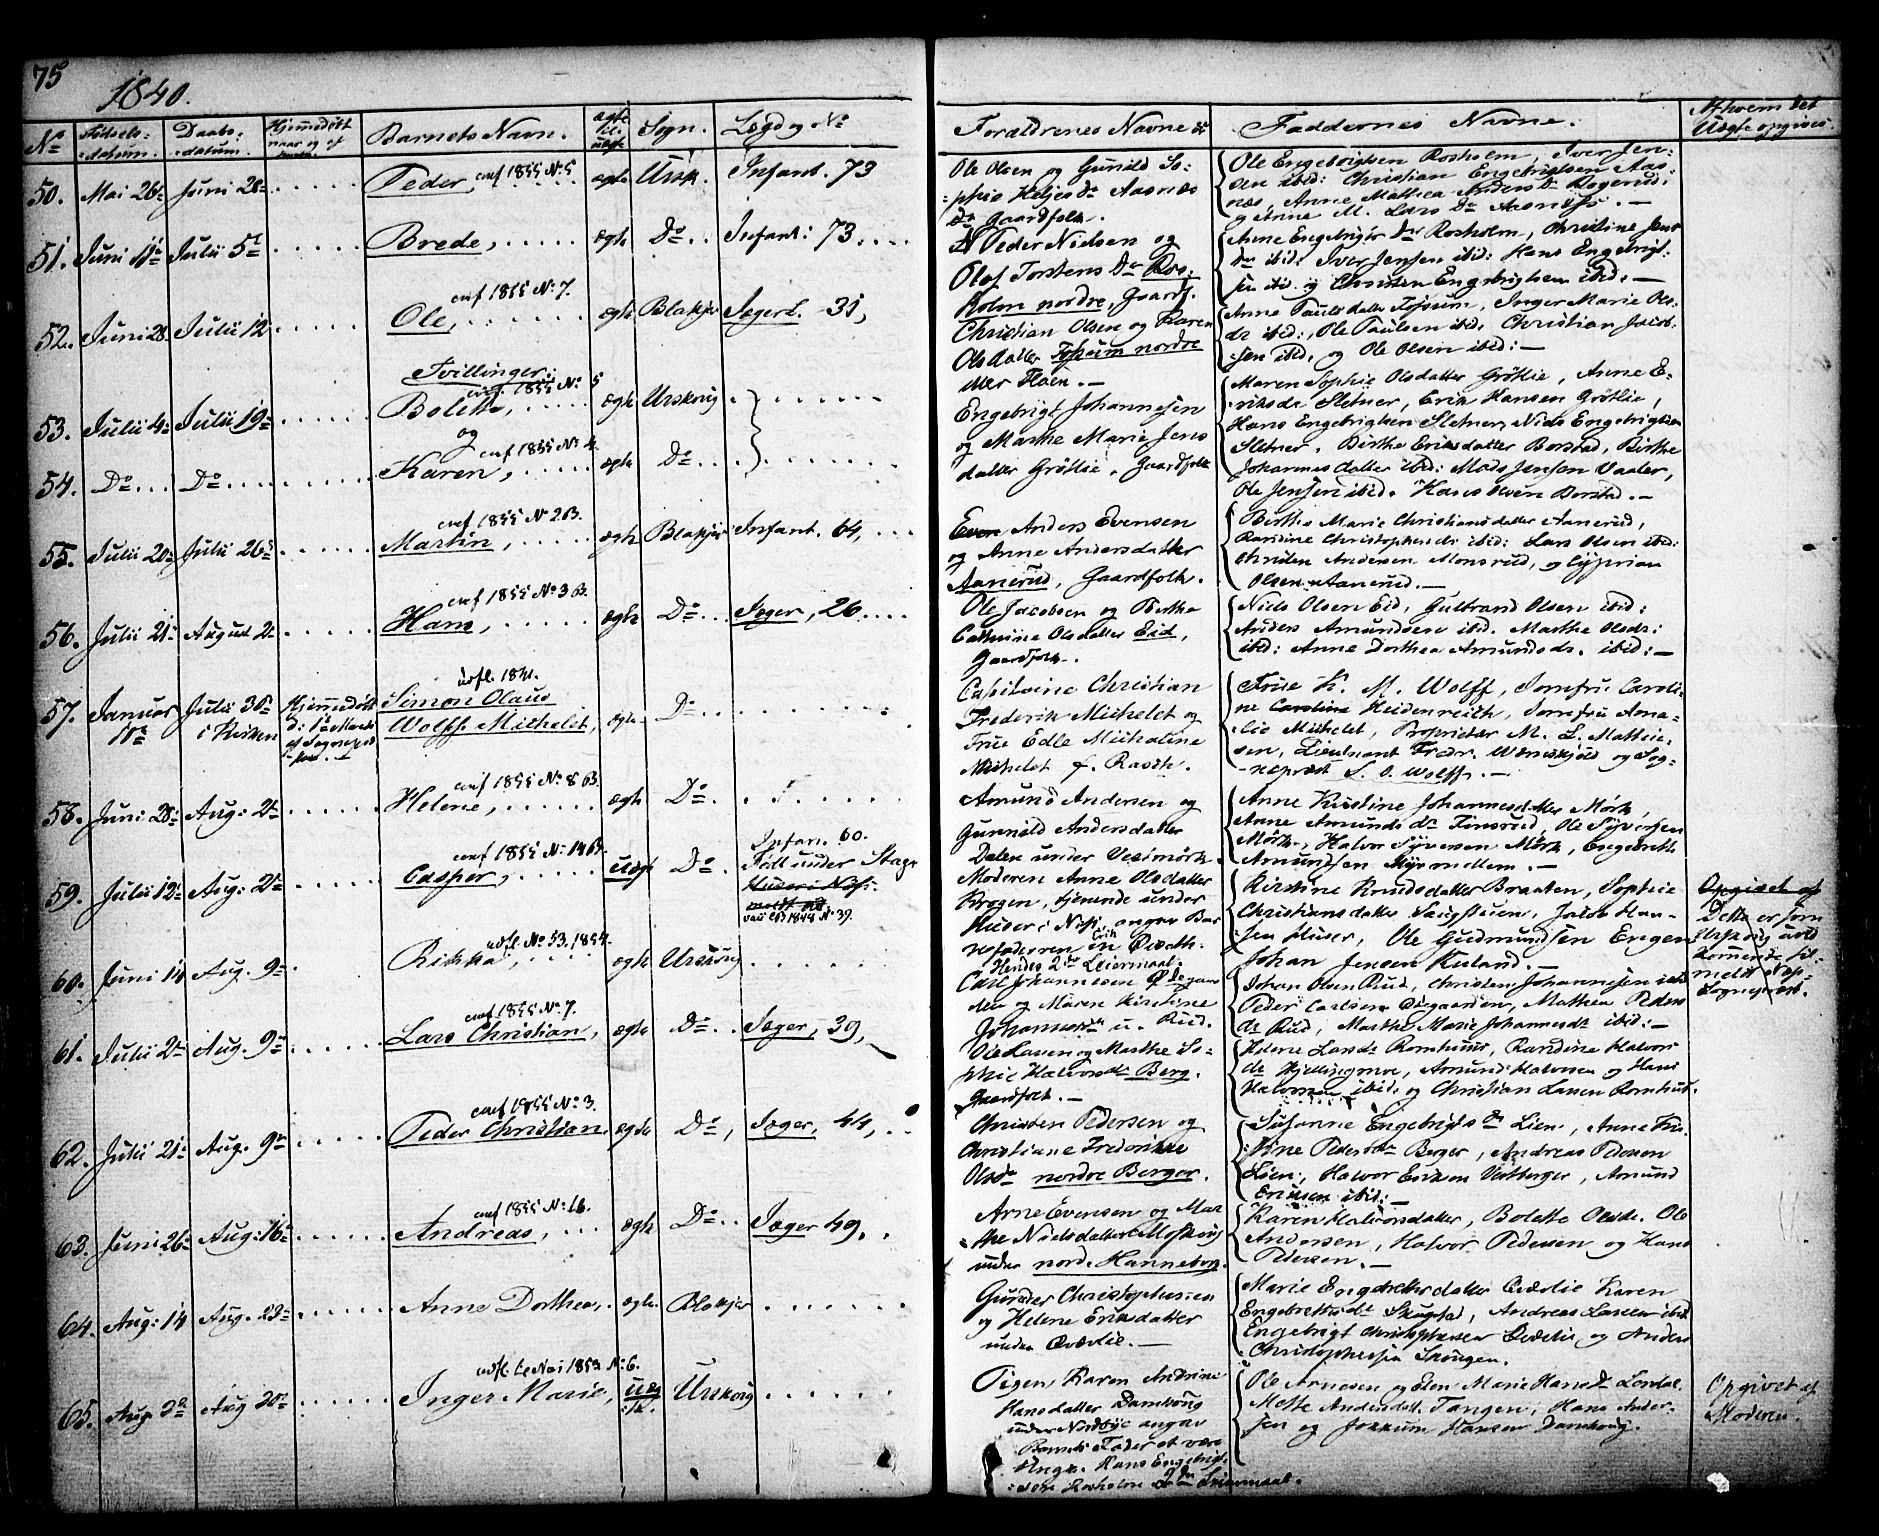 75
1840.
No
Fødsels-
datum.
Daabs-
datum.
Hjemmedøbt
naar og af
Barnets Navn.
ægte
uægte
Sogn.
Lægd og No
Forældrenes Navne
Faddernes Navne.
Af hvem det
Uægte opgives
50. Mai 26 Juni 28 Peder, conf 1855 No 5 ægte Ursk. Infant. 73
Ole Olsen og Gunild So-
phie Heljesdr Aasnæs
Gaardfolk.
Ole Engebrigtsen Rosholm, Iver Jen-
sen ibid: Christian Engebrigtsen Aas-
næs, Anne Mathea Andersdr
og Anne M. Larsdr Aasnæs. —
51. Juni 11 Julii 5 Brede, ægte Do Infant: 73
Peder Nielsen og
Olaf Torstensdr Ros-
holm nordre, Gaardf.
Anne Engebrigtsdr Rosholm, Christine Jens
dr ibid: Iver Jensen ibid: Hans Engebrigt-
sen ibid. og Christen Engebrigtsen ibid. —
52. Juni 28 Julii 12 Ole, conf 1855 No 7. ægte Blakjer Jægerl. 31,
Christian Olsen og Karen
Olsdatter nordre
eller Floen. —
Anne Paulsdatter Inger Marie Ols-
dr ibid., Ole Paulsen ibid. Christian Jacob-
sen ibid, og Ole Olsen ibid: —
Tvillinger:
conf. 1855 No 5
53. Julii 4 Julii 19 Bolette, ægte Urskoug
og
conf 1855 No 4.
54. Do Do Karen, ægte Do
Engebrigt Johannesen
og Marthe Marie Jens
datter Grøtlie. Gaardfolk
Maren Sophie Olsdatter Grøtlie, Anne E-
riksdr Sletner, Erik Hansen Grøtlie,
Hans Engebrigtsen Sletner, Niels Engebrigtsen
Sletner. Birthe Eriksdatter Borstad, Birthe
Johannesdatter ibid: Mads Jensen Vaaler,
Ole Jensen ibid. Hans Olsen Borstad. —
55. Julii 20 Julii 26 Martin, conf 1855 No 2 B. ægte Blakjer Infant. 64,
Even Anders Evensen
og Anne Andersdatter
Aanerud, Gaardfolk.
Berthe Marie Christiansdatter Aanerud,
Randine Christophersdr ibid: Lars Olsen ibid:
Christen Andersen Monsrud, og Cyprian
Olsen Aanerud. —
56. Julii 21 August 2 Hans, conf 1855 No 3 B. ægte Do Jæger, 26
Ole Jacobsen og Berthe
Cathrine Olsdatter Eid,
Gaardfolk.
Niels Olsen Eid, Gulbrand Olsen ibid:
Anders Amundsen ibid. Marthe Olsdr:
ibid: Anne Dorthea Amundsdr. ibid: —
57. Januar 11 Julii 30 i Kirken Hjemmedøbt
d: 1ste Marts
af Sognepræ-
sten. — Simon Olaus
Wolff Michelet, udfl. 1841. ægte Do
Capitaine Christian
Frederik Michelet og
Frue Edle Michaline
Michelet f. Rasch.
Frue K. M. Wolff, Jomfru Caroli-
ne Caroline Heidenreich, Jomfru Ama-
lie Michelet, Proprietær M. L. Mathie-
sen, Lieutnant Fredr. Wærnskjold og Sog-
nepræst S. O. Wolff. —
58. Juni 28 Aug: 2 Helene, conf 1855 No 8 B. ægte Do
Amund Andersen og
Gunnild Andersdatter
Dalen under Vestmørk.
Anne Kristine Johannesdatter Mørk,
Anne Amundsdr Finsrud, Ole Syversen
Mørk, Halvor Syversen Mørk, Engebreth
Amundsen Myrmellem. —
59. Julii 12 Aug: 2 Casper, conf 1855 No 14 B. uægt Do
Infan. 60.
Født under Stage
Huser i Næs:
meldt ad
1844 No 39.
Moderen Anne Olsdatter
Krogen, tjenende under
Huser i Næs, angav Bar
nefaderen Erik
Hendes 2det Leiermaal.
Kirstine Knudsdatter Braaten, Sophie
Christiansdatter Jacob Han-
sen Huser, Ole Gudmundsen Engen
Johan Jensen Ruland. —
Opgivet af
Dette er som
Urskoug ved
kommende til-
meldt Næs
Sognepræst.
60. Juni 14 Aug. 9 Rikka, udfl. No 53. 1854. ægte Urskoug
Carl Johannesen Ødegaar
den og Maren Kirstine
Johannesdr u. Rud.
Johan Olsen Rud, Christen Johannesen ibid
Peder Carlsen Ødegaarden, Mathea Peders
dr Rud, Marthe Marie Johannesdr ibid: —
61. Julii 2 Aug. 9 Lars Christian, conf 1855 No 7. ægte Do Jæger, 39,
Ole Larsen og Marthe So-
phie Halvorsdr Berg.
Gaardfolk. —
Helene Larsdr Romhuus, Randine Halvors
dr Amund Halvorsen og Hans
Halvorsen ibid. og Christian Larsen Romhus.
62. Julii 21 Aug. 9 Peder Christian, conf 1855 No 3. ægte Do, Jæger, 44,
Christen Pedersen og
Christiane Frederikke
Olsdr nordre Berger.
Susanne Engebrigtsdr Lien, Anne Kri-
stine Pedersdr Berger, Andreas Pedersen
Lien, Halvor Eriksen Vestberger, Amund
Eriksen ibid: —
63. Juni 26 Aug: 16 Andreas, conf 1855 No 16. ægte Do Jæger 49.
Arne Evensen og Mar-
the Nielsdatter
under nord. Hanneborg.
Karen Halvorsdatter, Bolette Olsdr. Ole
Andersen, Halvor Pedersen og Hans
Pedersen. —
64. Aug: 14 Aug. 23 Anne Dorthea, ægte Blakjer
Gunder Christophersen
og Helene Eriksdatter
under Qværlie. —
Marie Engebretsdatter Qværlie Karen
Engebretsdr Skugstad, Andreas Larsen ibid
Engebrigt Christophersen Qværlie, og Anders
Christophersen Skougen.
65. Aug. 3 Aug 30 Inger Marie, udfl. 6te Mai 1853 No 6. uæg-
te. Urskoug
Pigen Karen Andrine
Hansdatter Damkoug
under Nordbye angav
Barnets Fader at være
Ungk. Hans Engebrigt-
sen Rosholm 2den Leiermaal.
Ole Arnesen og Elen Marie Hansdr Lordal
Mette Andersdatt. Tangen, Hans Ander-
sen og Jokkum Hansen Damkoug.
Opgivet af
Moderen.